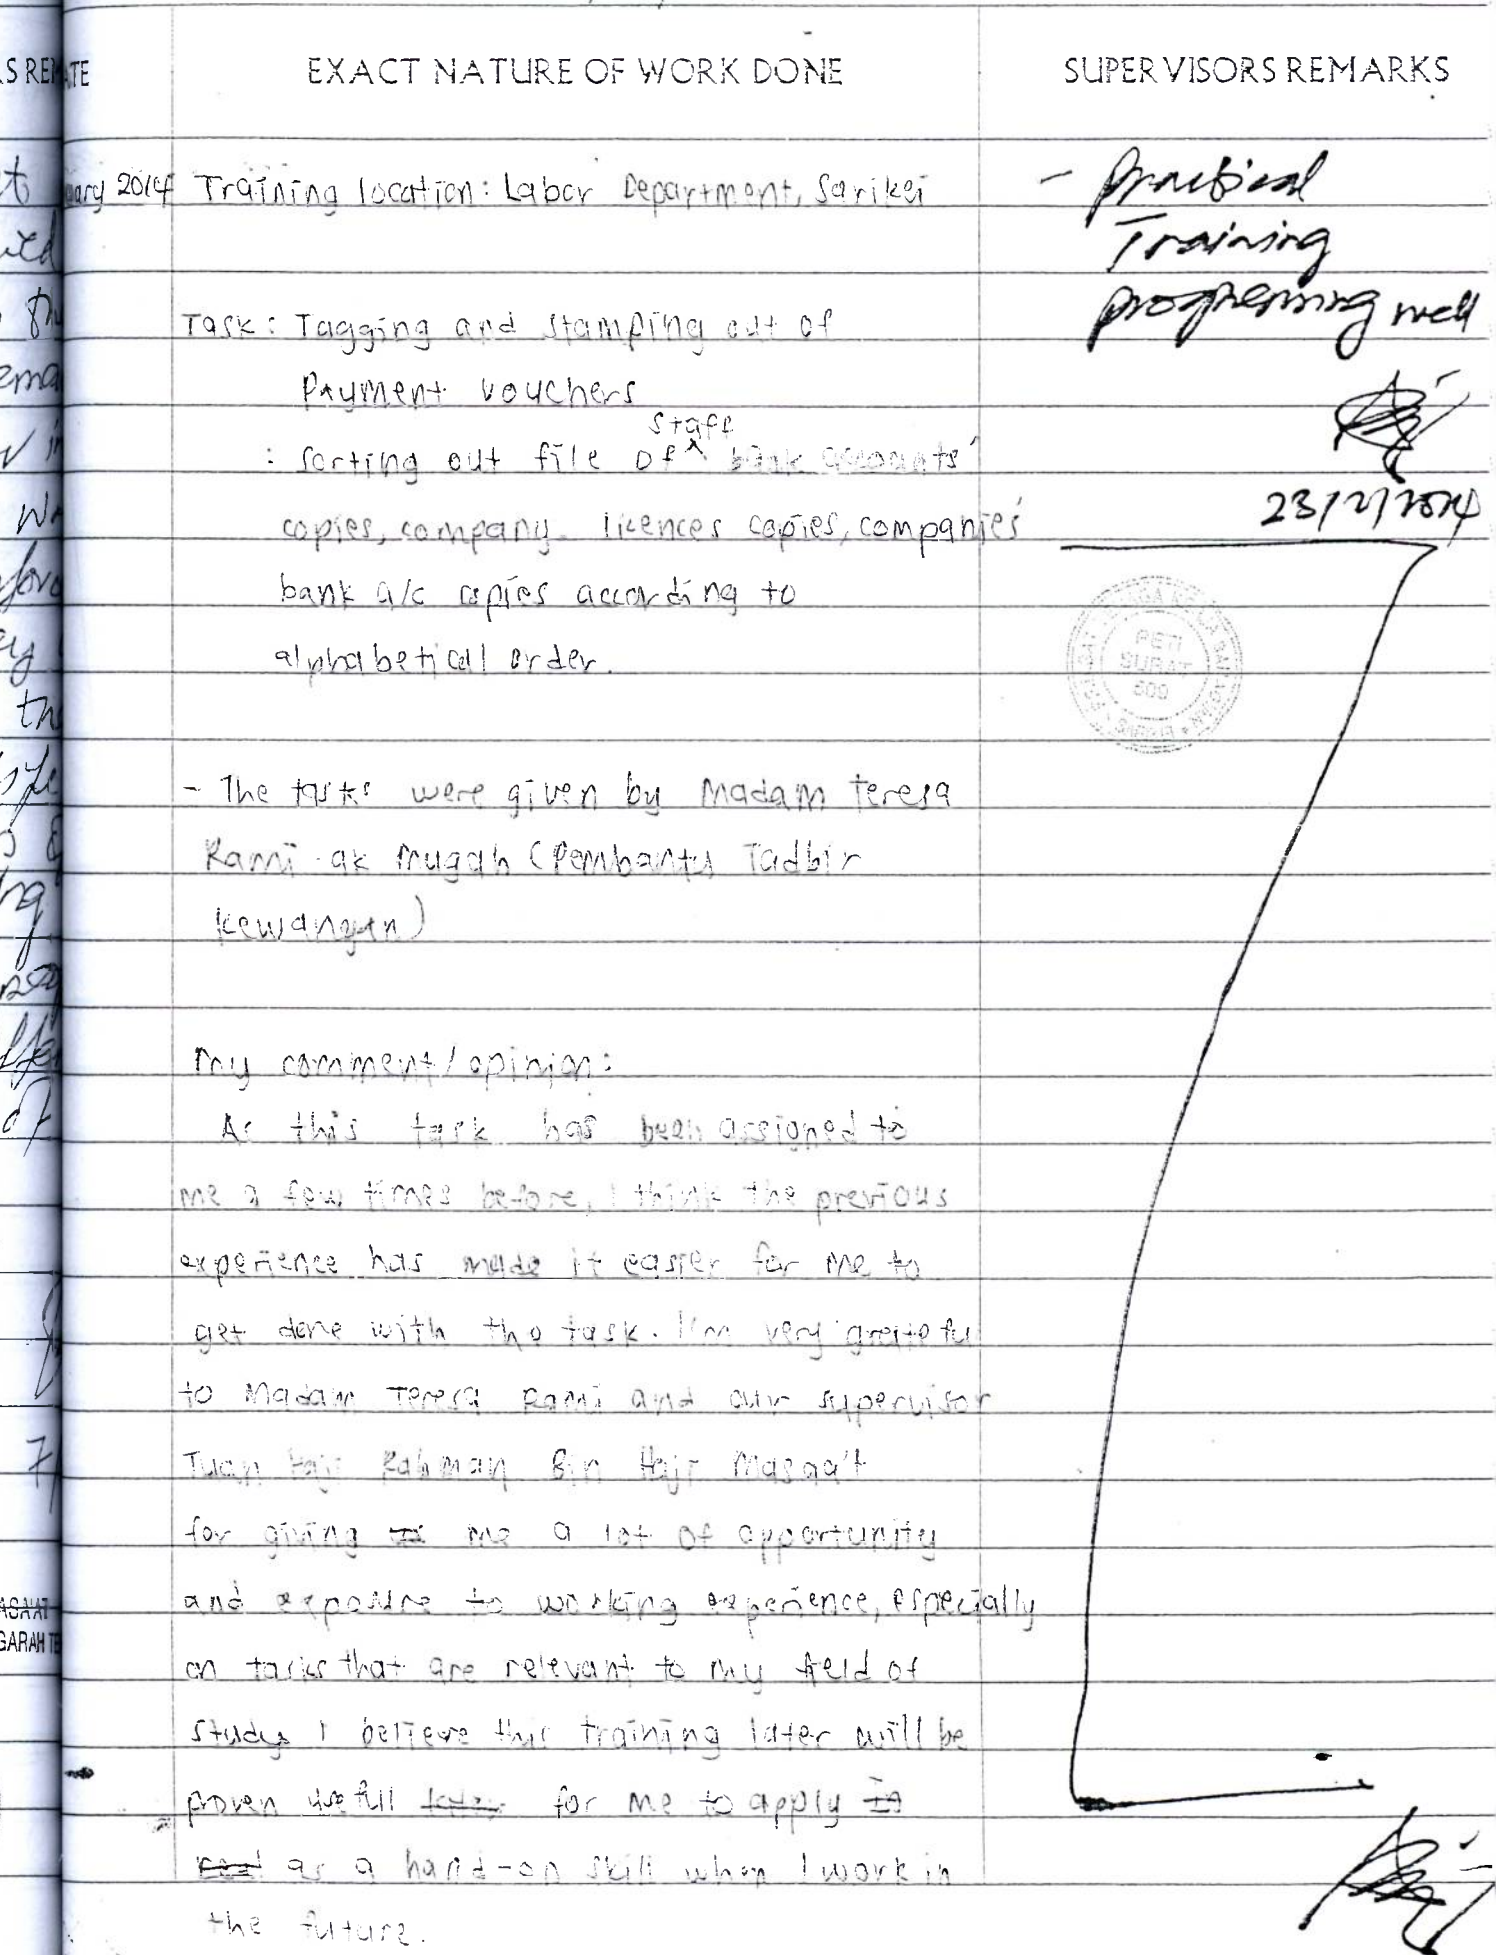 EXACT NATURE OF WORK DONE
SUPERVISORS REMARKS
2014 Training location: Labor Department, Sarikei
Task: Tagging and stamping out of
Payment vouchers
: Sorting out file of staff bank accounts'
copies, company licences copies, companies'
bank a/c copies according to
alphabetical order.
- The tasks were given by Madam Teresa
Rami ak Mugah (Pembantu Tadbir
Kewangan)
My comment/opinion:
As this task has been assigned to
me a few times before, I think the previous
experience has made it easier for me to
get done with the task. I'm very grateful
to Madam Teresa Rami and our supervisor
Tuan Haji Rahman Bin Haji Masaa't
for giving me a lot of opportunity
and exposure to working experience, especially
on tasks that are relevant to my field of
study. I believe this training later will be
proven usefull later for me to apply in
real as a hand-on skill when I work in
the future.
- Practical
Training
progressing well
23/2/2014
PETI
SURAT
600